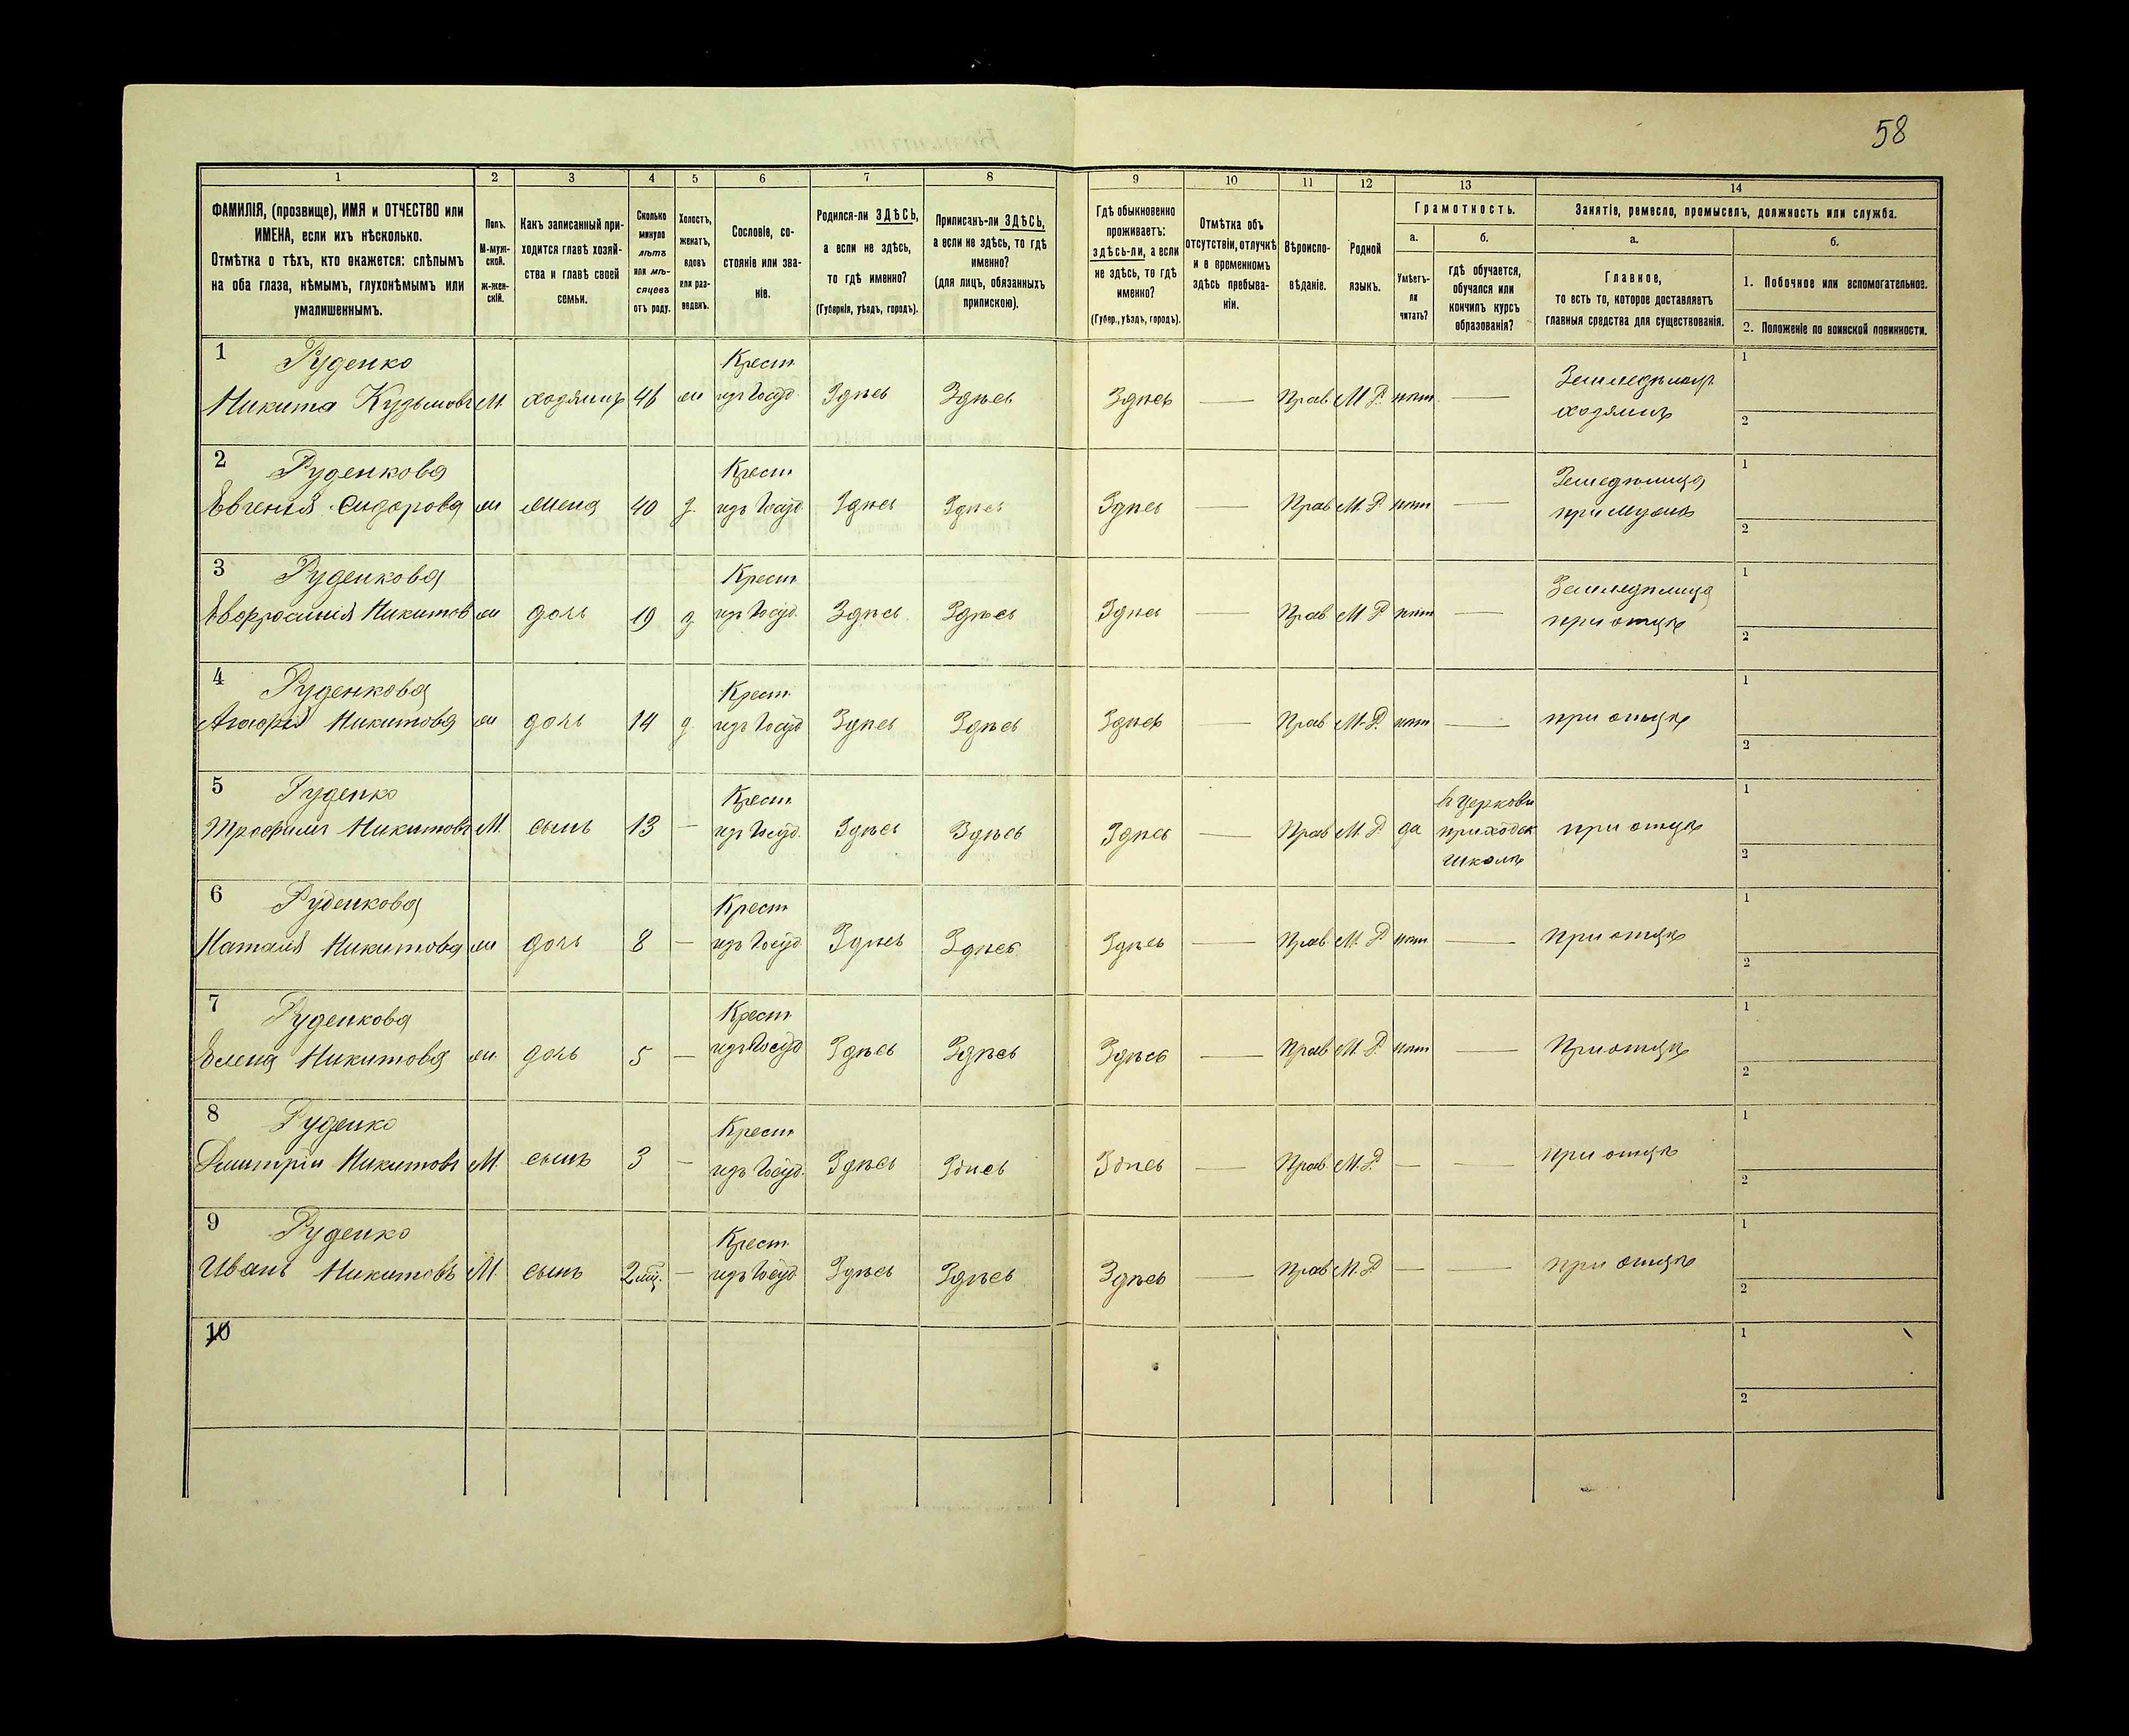 58
1 2 3 4 5 6 7 8 9 10 11 12 13 14
ФАМИЛІЯ, (прозвище), ИМЯ и ОТЧЕСТВО или
ИМЕНА, если ихъ нѣсколько.
Отмѣтка о тѣхъ, кто окажется: слѣпымъ
на оба глаза, нѣмымъ, глухонѣмымъ или
умалишеннымъ.
Полъ.
М-муж-
ской.
Ж-жен-
скій.
Какъ записанный при-
ходится главѣ хозяй-
ства и главѣ своей
семьи.
Сколько
минуло
лѣтъ
или мѣ-
сяцевъ
отъ роду.
Холостъ,
женатъ,
вдовъ
или раз-
веденъ.
Сословіе, со-
стояніе или зва-
ніе.
Родился-ли ЗДѢСЬ,
а если не здѣсь,
то гдѣ именно?
(Губернія, уѣздъ, городъ).
Приписанъ-ли ЗДѢСЬ,
а если не здѣсь, то гдѣ
именно?
(для лицъ, обязанныхъ
припискою).
Гдѣ обыкновенно
проживаетъ:
здѣсь-ли, а если
не здѣсь, то гдѣ
именно?
(Губер., уѣздъ, городъ).
Отмѣтка объ
отсутствіи, отлучкѣ
и о временномъ
здѣсь пребыва-
ніи.
Вѣроиспо-
вѣданіе.
Родной
языкъ.
Грамотность.
а.
Умѣетъ-
ли
читать?
б.
гдѣ обучается,
обучался или
кончилъ курсъ
образованія?
Занятіе, ремесло, промыселъ, должность или служба.
а.
Главное,
то есть то, которое доставляетъ
главныя средства для существованія.
б.
1. Побочное или вспомогательное.
2. Положеніе по воинской повинности.
1 Руденко Крест Земледѣлецъ 1
Никита Кузьмовъ М. хозяинъ 46 ж изъ Госуд. Здѣсь Здѣсь Здѣсь — Прав М Р. нѣт — хозяинъ 2
2 Руденкова Крест Земледѣлица 1
Евгенія Сидорова ж жена 40 з. изъ Госуд. Здѣсь Здѣсь Здѣсь — Прав М. Р нѣт — при мужѣ 2
3 Руденкова Крест Земледѣлица 1
Евфросинія Никитов ж дочь 19 д изъ Госуд. Здѣсь Здѣсь Здѣсь — Прав М Р нѣт — при отцѣ 2
4 Руденкова Крест. 1
Агафія Никитова ж дочь 14 д. изъ Госуд Здѣсь Здѣсь Здѣсь — Прав М. Р. нѣт — при отцѣ 2
5 Руденко Крест. въ церковн 1
Трофимъ Никитовъ М. сынъ 13 — изъ Госуд. Здѣсь Здѣсь Здѣсь — Прав М. Р да приходск при отцѣ
школѣ 2
6 Руденкова Крест 1
Наталія Никитова ж дочь 8 — изъ Госуд. Здѣсь Здѣсь Здѣсь — Прав. М. Р нѣт — при отцѣ 2
7 Руденкова Крест 1
Елена Никитова ж. дочь 5 — изъ Госуд Здѣсь Здѣсь Здѣсь — Прав М. Р. нѣт — При отцѣ 2
8 Руденко Крест 1
Дмитрій Никитовъ М. сынъ 3 — изъ Госуд. Здѣсь Здѣсь Здѣсь — Прав. М.Р. — — при отцѣ 2
9 Руденко Крест 1
Иванъ Никитовъ М. сынъ 2 мц. — изъ Госуд Здѣсь Здѣсь Здѣсь — Прав М.Р — — при отцѣ 2
10 1
2